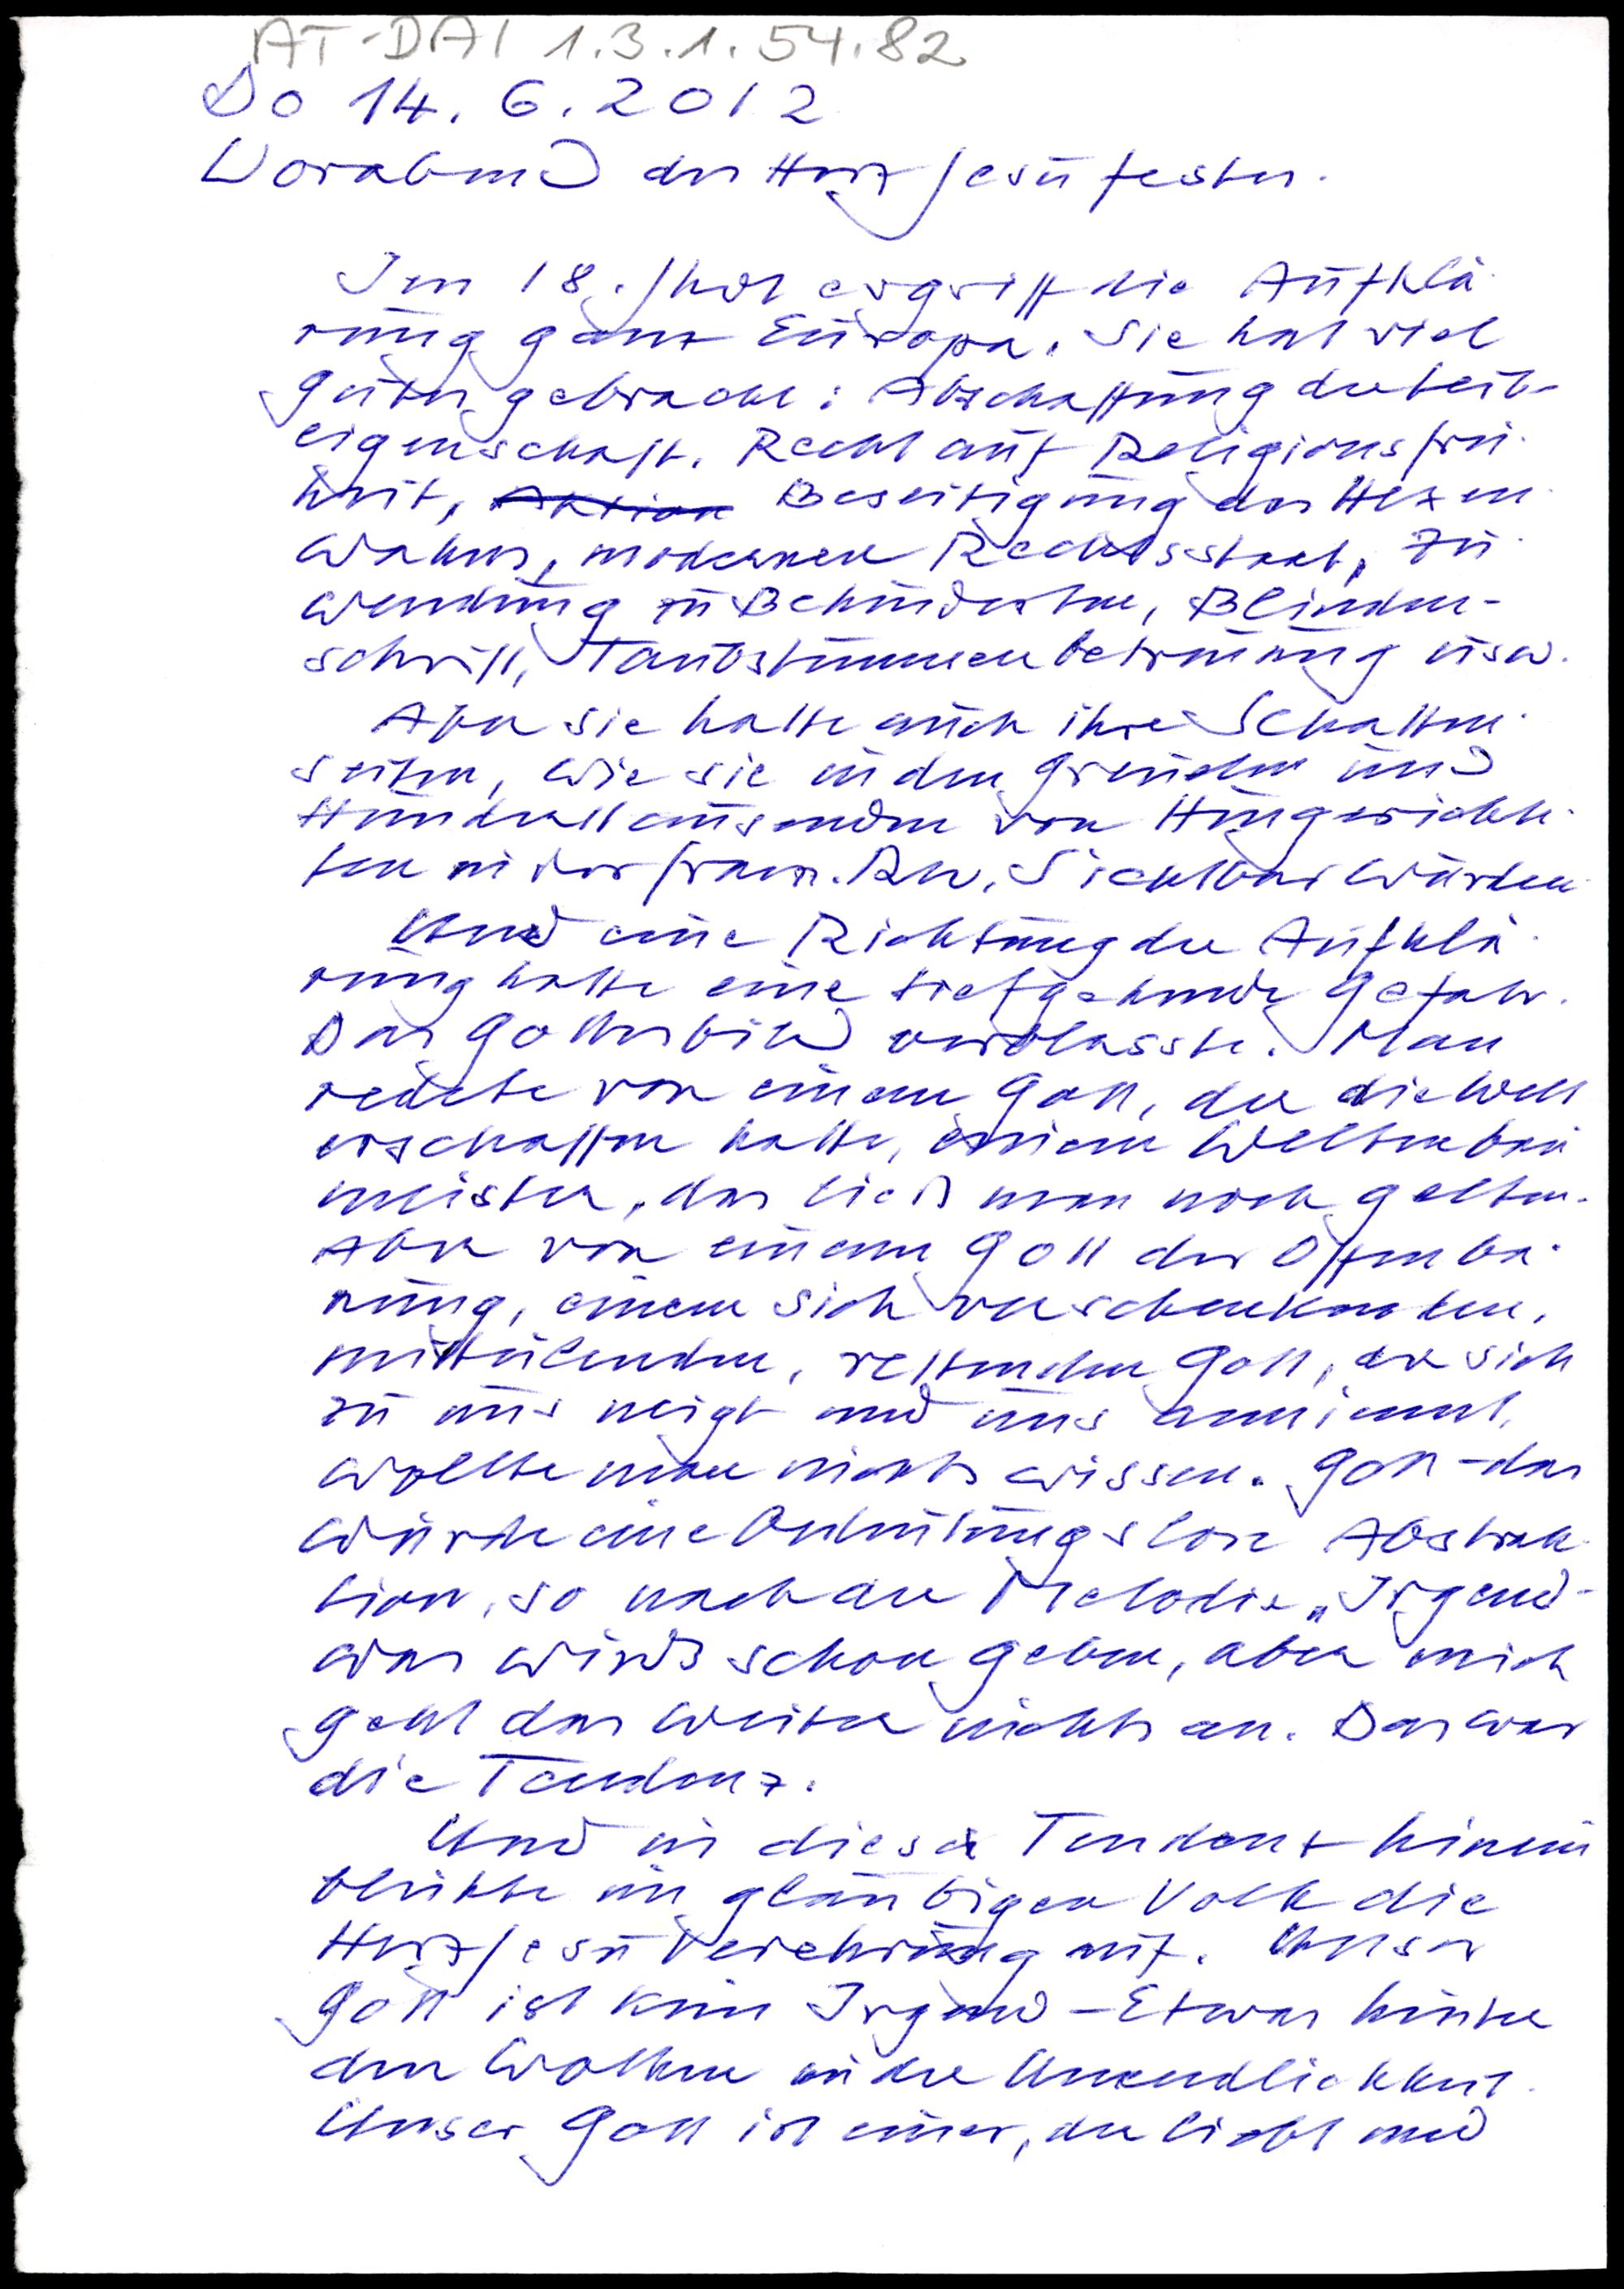 AT-DAI 1.3.1.54.82
Do 14.6.2012
Vorabend des Herz Jesu festes.
Im 18. Jhdt ergriff die Aufklä-
rung ganz Europa. Sie hat viel
Gutes gebracht: Abschaffung der Leib-
eigenschaft. Recht auf Religionsfrei-
heit, Aktion Beseitigung des Hexen-
wahns, moderner Rechtsstaat, Zu-
wendung zu Behinderten, Blinden-
schrift, Taubstummenbetreuung usw.
Aber sie hatte auch ihre Schatten-
seiten, wie sie in den Greueln und
Hunderttausenden von Hingerichte-
ten in der franz. Rev. sichtbar wurden.
Und eine Richtung der Aufklä-
rung hatte eine tiefgehende Gefahr.
Das Gottesbild verblasste. Man
redete von einem Gott, der die Welt
erschaffen hatte, einem Weltenbau
meister, das ließ man noch gelten.
Aber von einem Gott der Offenba-
rung, einem sich verschenkenden,
mitteilenden, rettenden Gott, der sich
zu uns neigt und uns annimmt,
wollte man nichts wissen. Gott - das
wurde eine bedeutungslose Abstrak-
tion, so nach der Melodie „Irgend-
was wirds schon geben, aber mich
geht das weiter nichts an. Das war
die Tendenz.
Und in diese Tendenz hinein
blühte im gläubigen Volk die
Herz Jesu Verehrung auf. Unser
Gott ist kein Irgend-Etwas hinter
den Wolken in der Unendlichkeit.
Unser Gott ist einer, der liebt und